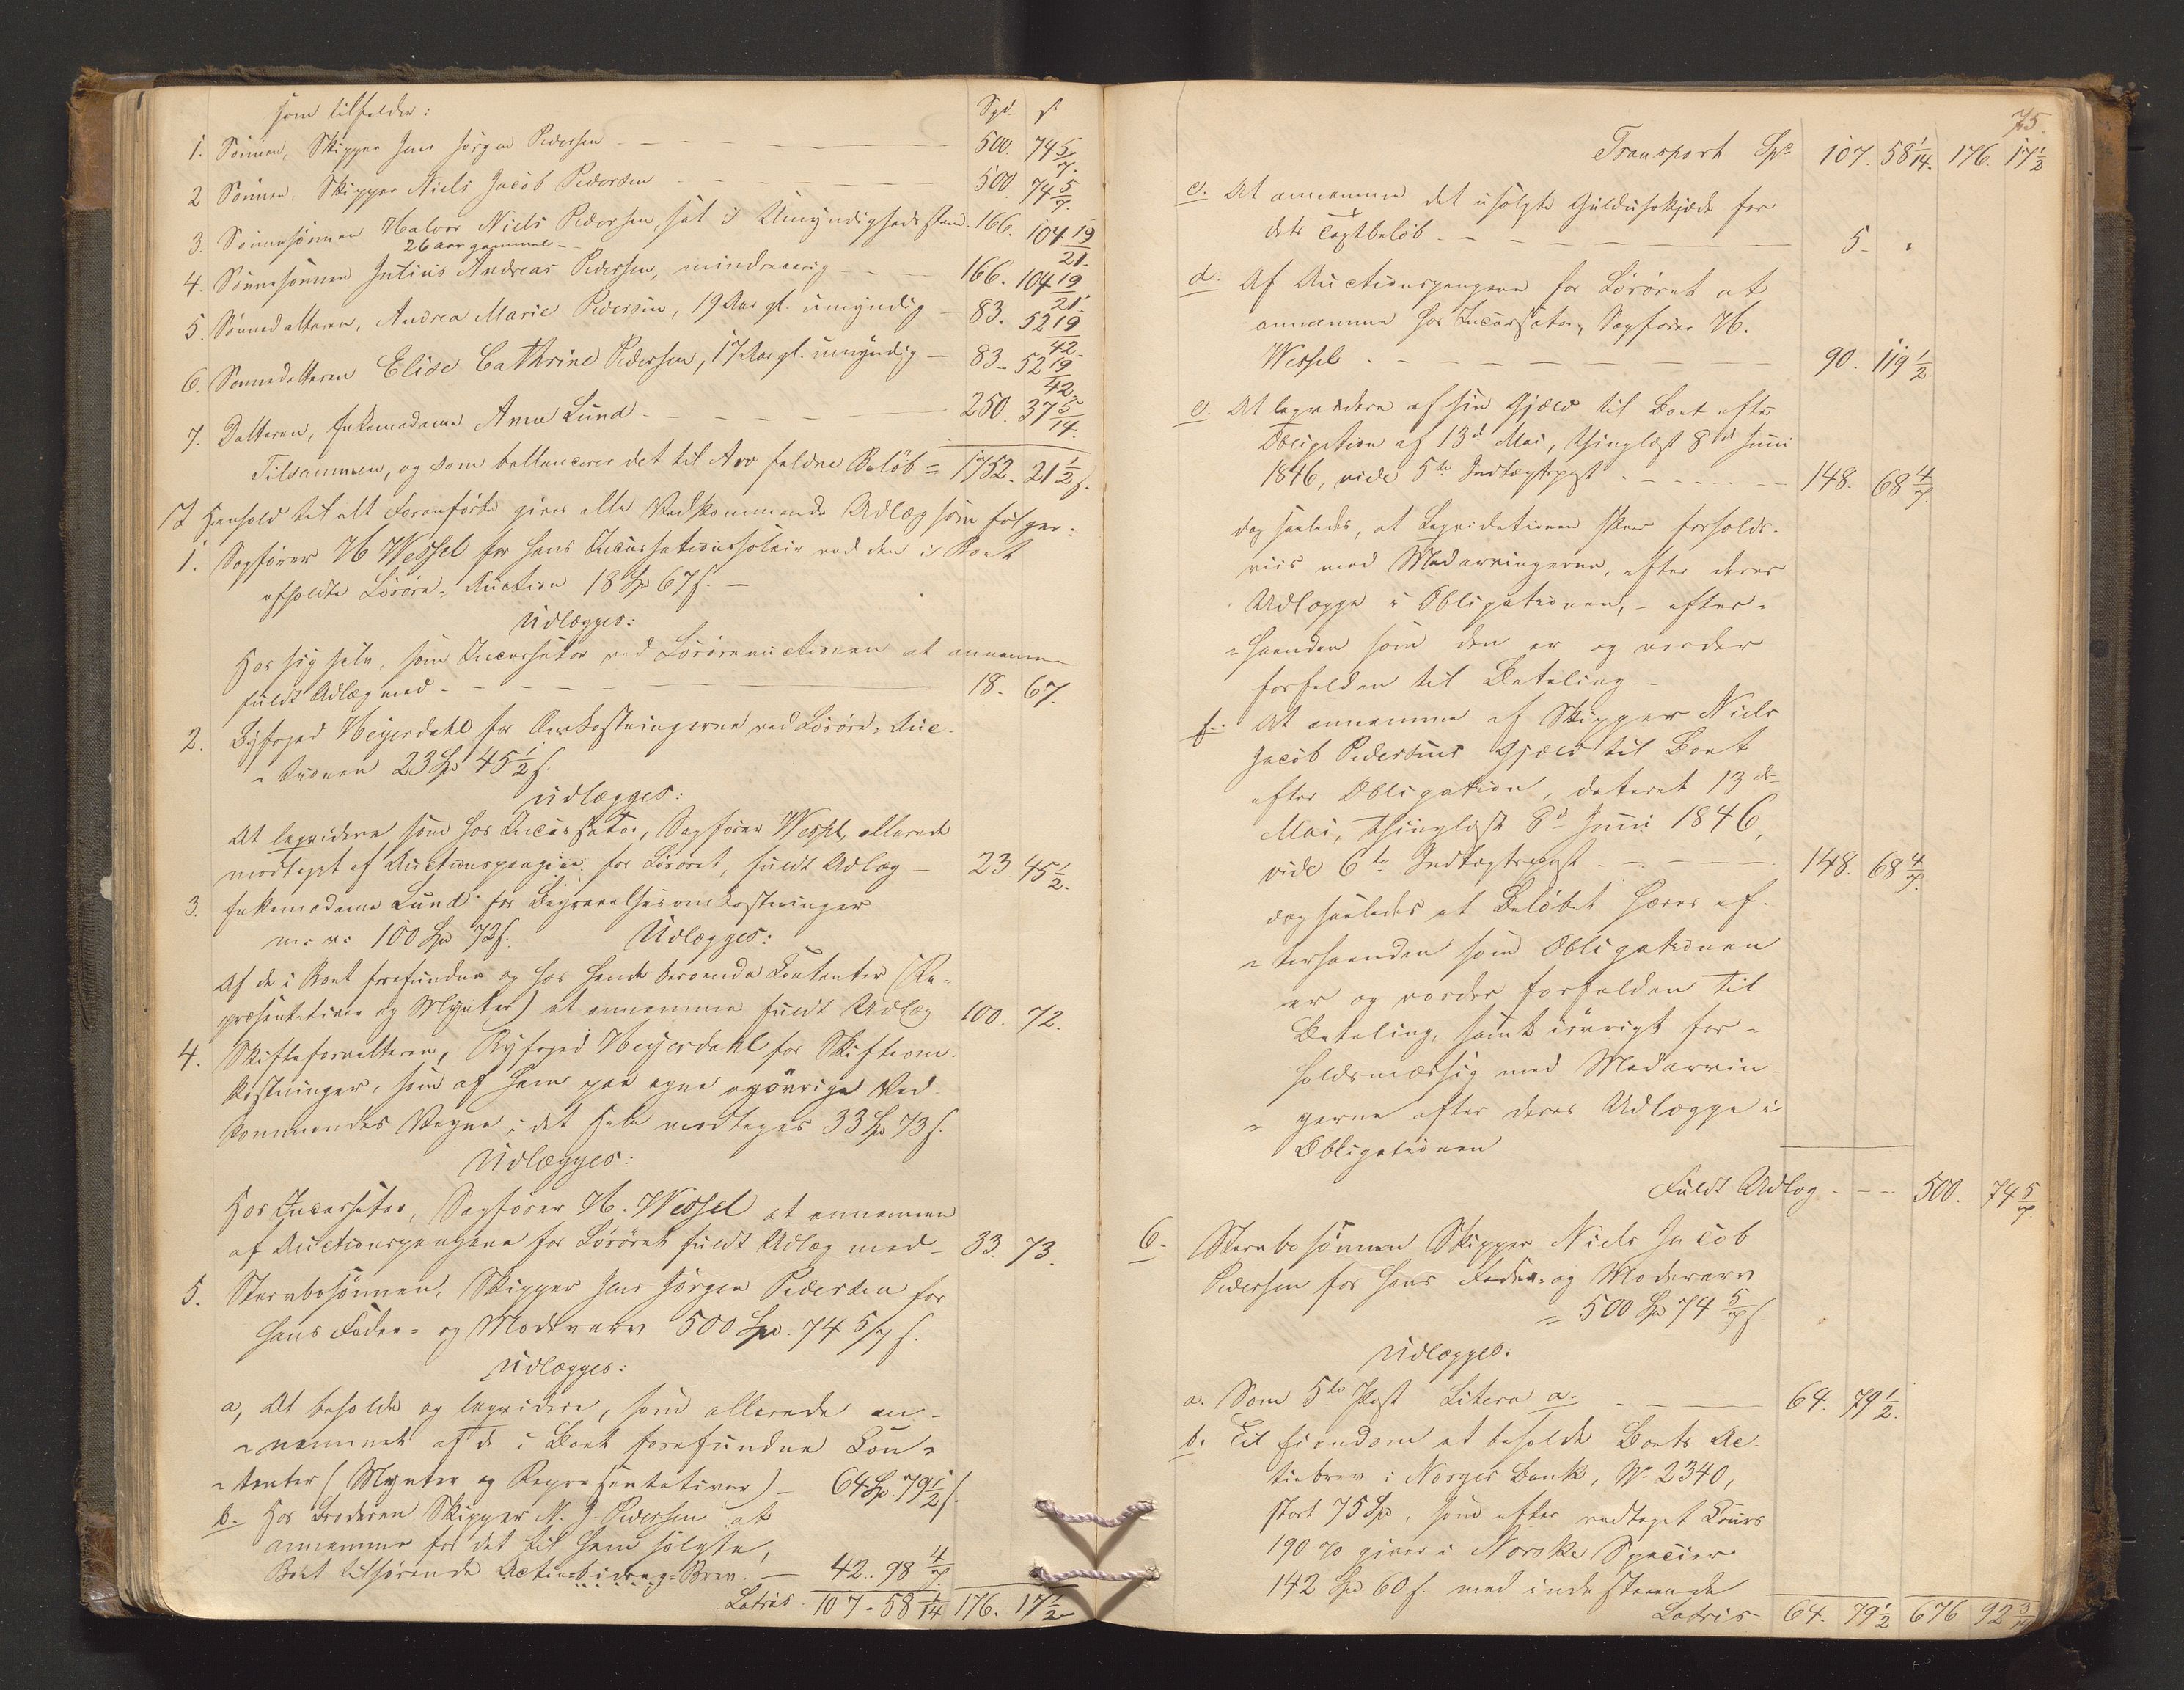 som tilfalder: Spd. s.
1. Sönnen, Skipper Jens Jörgen Pedersen 500. 74 5/7.
2 Sönnen, Skipper Niels Jacob Pedersen 500. 74 5/7.
3. Sönnesönnen Halvor Niels Pedersen, sat i Umyndighedsstand. 166. 104 19/21.
26 aar gammel
4. Sönnesönnen Julius Andreas Pedersen, mindreaarig 166. 104 19/21.
5. Sönnedatteren, Andrea Marie Pedersen, 19 Aar gl. umyndig 83. 52 19/42.
6. Sönnedatteren Elise Cathrine Pedersen, 17 Aar gl. umyndig 83. 52 19/42.
7. Datteren, Enkemadame Anne Lund 250. 37 5/14.
Tilsammen, og som ballancerer det til Arv faldne Belöb = 1752. 21 1/2 s.
I Henhold til alt Foranförte gives alle Vedkommende Udlæg som fölger:
1. Sagförer H Wessel for hans Incassationssalair ved den i Boet
afholdte Lösöre-Auction 18 Spd 67 s.
Udlægges:
Hos sig selv, som Incassator ved Lösöreauctionen at annamme
fuldt Udlæg med 18. 67.
2. Byfoged Heyerdahl for Omkostningerne ved Lösöre-Auc-
-tionen 23 Spd 45 1/2 s.
Udlægges:
At liqvidere som hos Incassator, Sagförer Wessel, allerede
modtaget af Auctionspengene for Lösöret, fuldt Udlæg 23 45 1/2.
3. Enkemadame Lund for Begravelsesomkostninger
m. v. 100 Spd 72 s. Udlægges:
Af de i Boet forefundne og hos hende beroende Contanter (Re-
præsentativer og Mynter) at annamme fuldt Udlæg 100. 72.
4. Skifteforvalteren, Byfoged Heyerdahl for Skifteom-
kostninger, som af ham paa egne og övrige Ved-
kommendes Vegne i det Hele modtages 33 Spd 73 s.
Udlægges:
Hos Incassator, Sagförer H. Wessel at annamme
af Auctionspengene for Lösöret fuldt Udlæg med 33. 73.
5. Stervbosönnen, Skipper Jens Jörgen Pedersen for
hans Fader- og Moderarv 500 Spd. 74 5/7 s.
Udlægges:
a, At beholde og liqvidere, som allerede an-
-nammet af de i Boet forefundne Con-
-tanter (Mynter og Repræsentativer) 64 Spd. 79 1/2 s.
b. Hos Broderen Skipper N. J. Pedersen at
annamme for det til ham solgte,
Boet tilhörende Actie-bidrag-Brev. 42. 98 4/7
Latris 107. 58 1/14 176. 17 1/2
75.
Transport Spd 107. 58 1/14. 176. 17 1/2
c. At annamme det usolgte Gulduhrkjæde for
dets Taxtbelöb 5. "
d. Af Auctionspengene for Lösöret at
annamme hos Incassator, Sagförer H.
Wessel 90. 119 1/2.
e. At liqvidere af sin Gjæld til Boet efter
Obligation af 13de Mai, thinglæst 8de Juni
1846, vide 5te Indtægtspost 148. 68 4/7.
dog saaledes, at Liqvidationen skeer forholds-
viis med Medarvingerne, efter deres
Udlægge i Obligationen, - efter-
-haanden som den er og vorder
forfalden til Betaling.
f. At annamme af Skipper Niels
Jacob Pedersens Gjæld til Boet
efter Obligation, dateret 13de
Mai, thinglæst 8de Juni 1846,
vide 6te Indtægtspost 148. 68 4/7.
dog saaledes at Belöbet hæves ef-
-terhaanden som Obligationen
er og vorder forfalden til
Betaling, samt iövrigt for-
holdsmæssig med Medarvin-
-gerne efter deres Udlægge i
Obligationen
Fuldt Udlæg 500. 74 5/7.
6. Stervbosönnen Skipper Niels Jacob
Pedersen for hans Fader- og Moderarv
= 500 Spd 74 5/7 s.
Udlægges:
a. Som 5te Post Litera a. 64. 79 1/2.
b. Til Eiendom at beholde Boets Ac-
tiebrev i Norges Bank, No 2340,
stort 75 Spd, som efter vedtaget Cours
190 % giver i Norske Specier
142 Spd 60 s. med indestaaende
Latris 64. 79 1/2 676 92 3/14